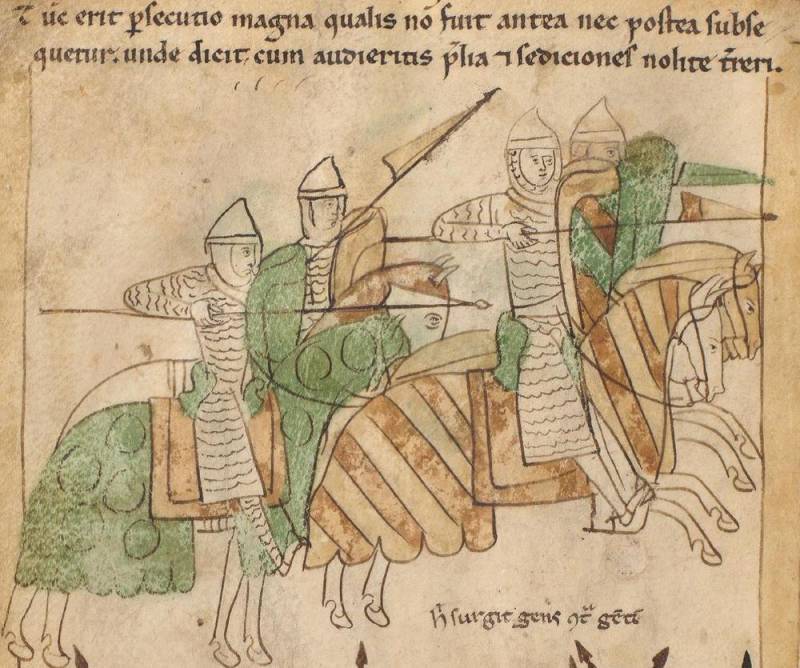 Tūc erit ꝑsecutio magna qualis nō fuit antea nec postea subse
quetur. unde dicit. cum audieritis p̄lia ⁊ sediciones nolite t̄reri.
h̄ surgit gens ꝯtͣ gētē